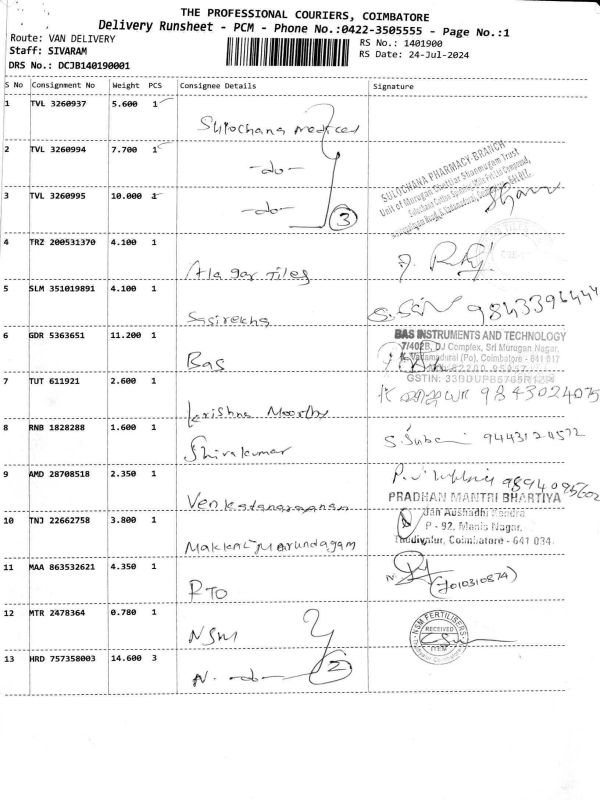 THE PROFESSIONAL COURIERS, COIMBATORE
Delivery Runsheet - PCM - Phone No.:0422-3505555 - Page No.:1
Route: VAN DELIVERY
RS No.: 1401900
Staff: SIVARAM
RS Date: 24-Jul-2024
DRS No.: DCJB140190001
S No Consignment No Weight PCS Consignee Details Signature
1 TVL 3260937 5.600 1
Sulochana medical
2 TVL 3260994 7.700 1
-do-
SULOCHANA PHARMACY-BRANCH
Unit of Murugan Chettiar Shanmugam Trust
3 TVL 3260995 10.000 1
-do-
3
4 TRZ 200531370 4.100 1
Alagar Tiles
5 SLM 351019891 4.100 1
Sasirekha
9843396444
6 GDR 5363651 11.200 1
Bas
BAS INSTRUMENTS AND TECHNOLOGY
7/402B, DJ Complex, Sri Murugan Nagar,
K.Vadamadurai (Po), Coimbatore - 641 017
7 TUT 611921 2.600 1
Krishna Moorthy
9843024075
8 RNB 1828288 1.600 1
Shivakumar
9443124572
9 AMD 28708518 2.350 1
Venkatanarayanan
9894095602
PRADHAN MANTRI BHARTIYA
Jan Aushadhi Kendra
P - 92, Manis Nagar,
Thudiyalur, Coimbatore - 641 034.
10 TNJ 22662758 3.800 1
Makkal Marundagam
11 MAA 863532621 4.350 1
RTO
(7010310874)
12 MTR 2478364 0.780 1
NSM
NSM FERTILISERS
RECEIVED
13 HRD 757358003 14.600 3
N. -do-
2